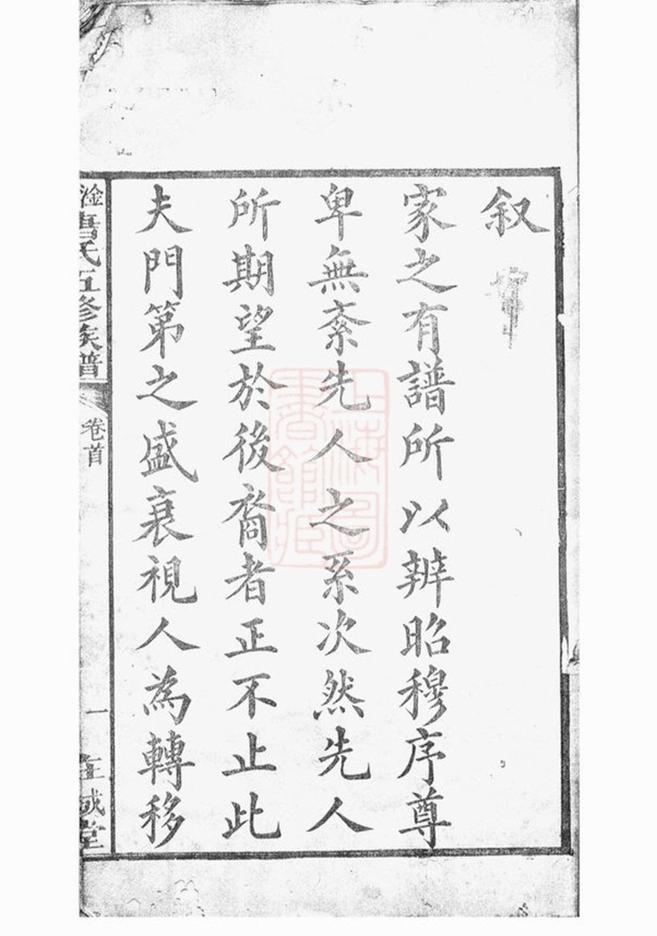 叙
家之有譜所以辨昭穆序尊
卑無紊先人之系次然先人
所期望於後裔者正不止此
夫門第之盛衰視人為轉移
淦
氏五修族譜
卷首
一
誠堂